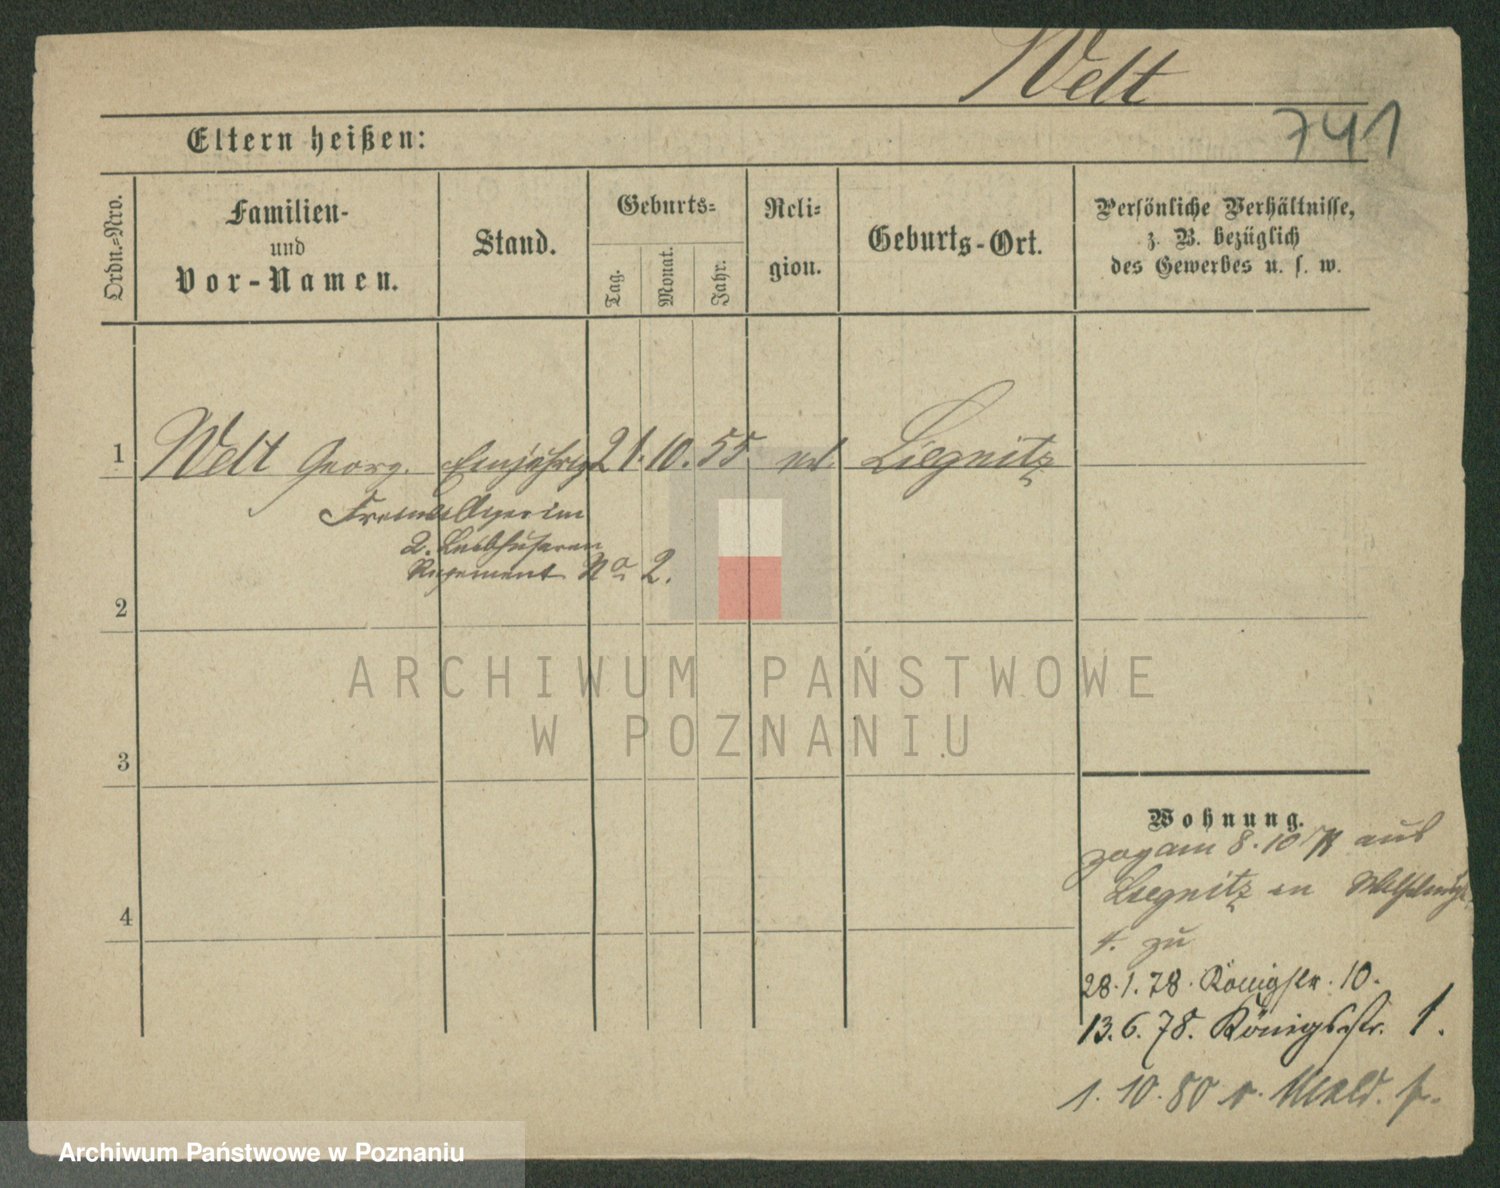 Welt
741
Eltern heißen:
Ordn.=Nro.
Familien-
und
Vor-Namen.
Stand.
Geburts=
Tag.
Monat.
Jahr.
Reli=
gion.
Geburts-Ort.
Persönliche Verhältnisse,
z. B. bezüglich
des Gewerbes u. s. w.
1 Welt Georg. Einjährig 21. 10. 55 Liegnitz
2. Leibhusaren
Regiment No 2.
2
3
4
Wohnung.
zog am 8. 10 aus
Liegnitz in
4. zu
28. 1. 78. Königstr. 10.
13. 6. 78. Königsstr. 1.
1. 10. 80 v.
ARCHIWUM PAŃSTWOWE
W POZNANIU
Archiwum Państwowe w Poznaniu